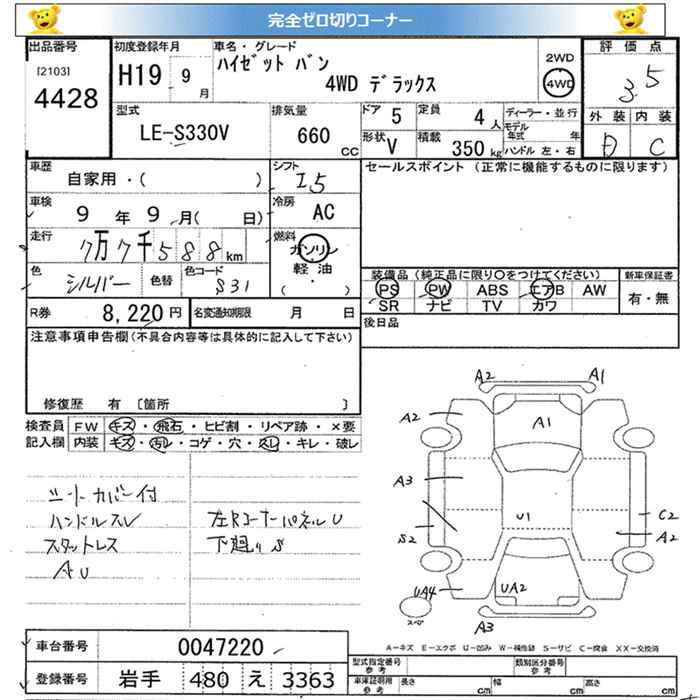 完全ゼロ切りコーナー
出品番号 初度登録年月 車名・グレード 評価点
[2103]
4428
H19 9月
ハイゼット バン
4WD デラックス
2WD
4WD
3.5
外装 内装
D C
型式 排気量 ドア 5 定員 4人 ディーラー・並行
LE-S330V 660cc
形状 V 積載 350kg
モデル年式 年
ハンドル 左・右
車歴 自家用・( )
シフト I5
セールスポイント (正常に機能するものに限ります)
車検 9年9月( 日)
冷房 AC
走行 7万7千588km
燃料 ガソリン
軽油
( ・ )
色 シルバー 色替 色コード S31
装備品 (純正品に限り〇をつけてください) 新車保証書
PS PW ABS エアB AW 有・無
SR ナビ TV カワ
R券 8,220円 名変通知期限 月 日
後日品
注意事項申告欄(不具合内容等は具体的に記入して下さい)
修復歴 有 〔箇所 〕
検査員記入欄 FW キズ・飛石・ヒビ割・リペア跡・×要
内装 キズ・汚レ・コゲ・穴・スレ・キレ・破レ
シートカバー付
ハンドルスレ
スタットレス
AU
左Rコーナーパネル U
下廻り S
A2 A1
A2 A1
A3
U1
S2
C2
A2
UA4 UA2
スペア
A3
A-キズ E-エクボ U-凹み W-補修跡 S-サビ C-腐食 XX-交換済
車台番号 0047220
登録番号 岩手 480 え 3363
型式指定番号 参考 類別区分番号 参考
車庫証明用 参考 長さ cm 幅 cm 高さ cm